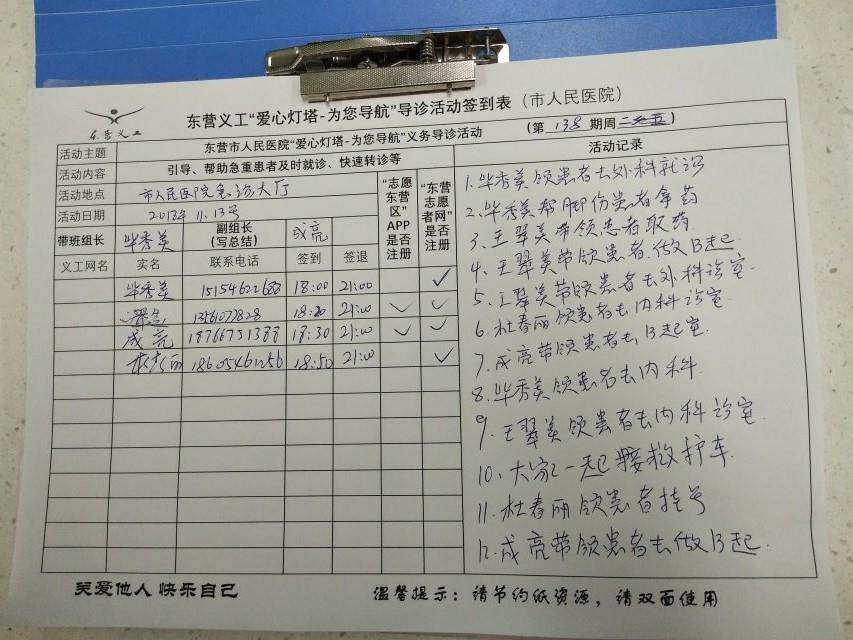 东营义工
东营义工“爱心灯塔-为您导航”导诊活动签到表（市人民医院）
活动主题 东营市人民医院“爱心灯塔-为您导航”义务导诊活动 （第 138 期周
活动内容 引导、帮助急重患者及时就诊、快速转诊等
活动地点 市人民医院急诊大厅
活动日期 11.13号
带班组长 毕秀美 副组长（写总结） 成亮
“志愿东营区”APP是否注册
“东营志愿者网”是否注册
义工网名 实名 联系电话 签到 签退
毕秀美 15154622688 18:00 21:00 ✓
18:20 21:00 ✓ ✓
成亮 18766751388 18:30 21:00 ✓ ✓
18:50 21:00 ✓
活动记录
1.毕秀美领患者去外科就诊
2.毕秀美帮脚伤患者拿药
3.王翠美带领患者取药
4.王翠美带领患者做B超
5.王翠美带领患者去外科诊室
6.杜春丽领患者去内科诊室
7.成亮带领患者去B超室
8.毕秀美领患者去内科
9.王翠美领患者去内科诊室
10.大家一起接救护车
11.杜春丽领患者挂号
12.成亮带领患者去做B超
关爱他人 快乐自己
温馨提示：请节约纸资源，请双面使用